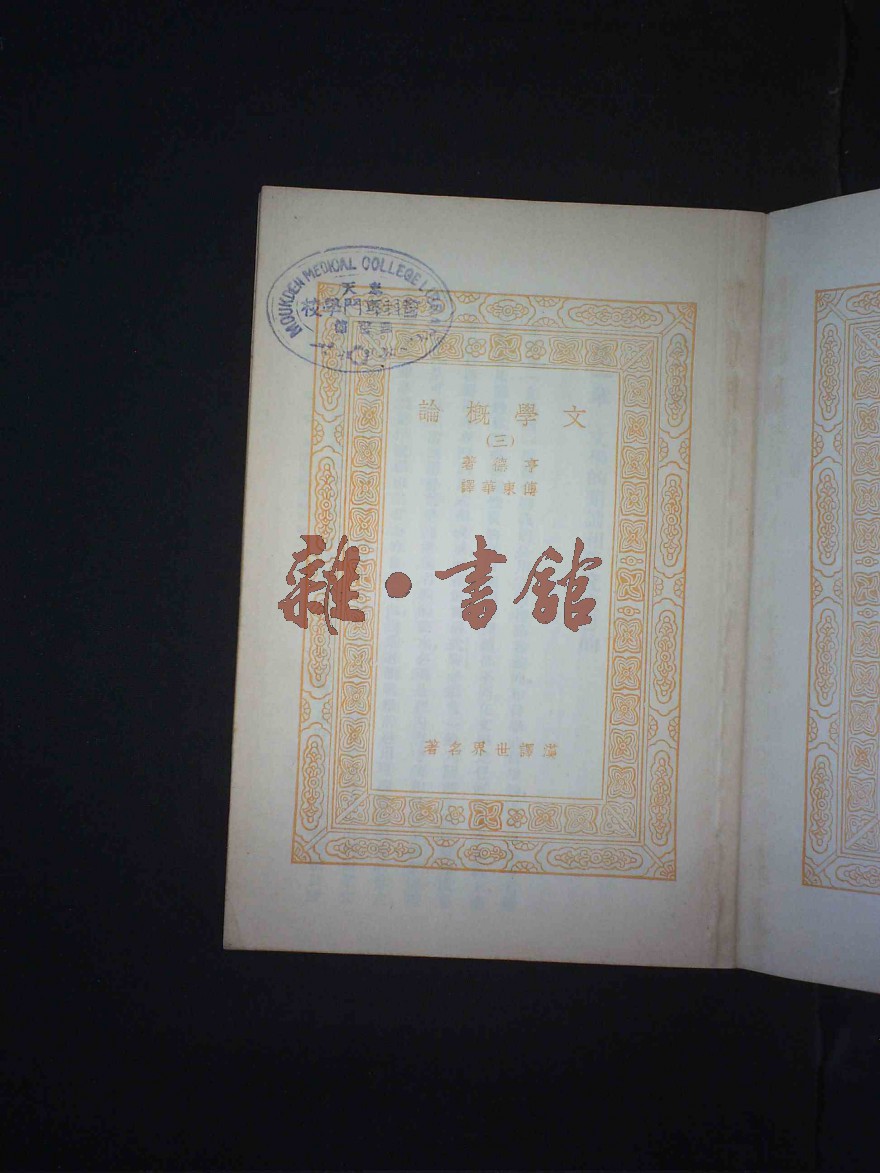 MOUKDEN MEDICAL COLLEGE LIBRARY
天
醫科專門學校
文學概論
(三)
亨德著
傅東華譯
雜·書館
漢譯世界名著